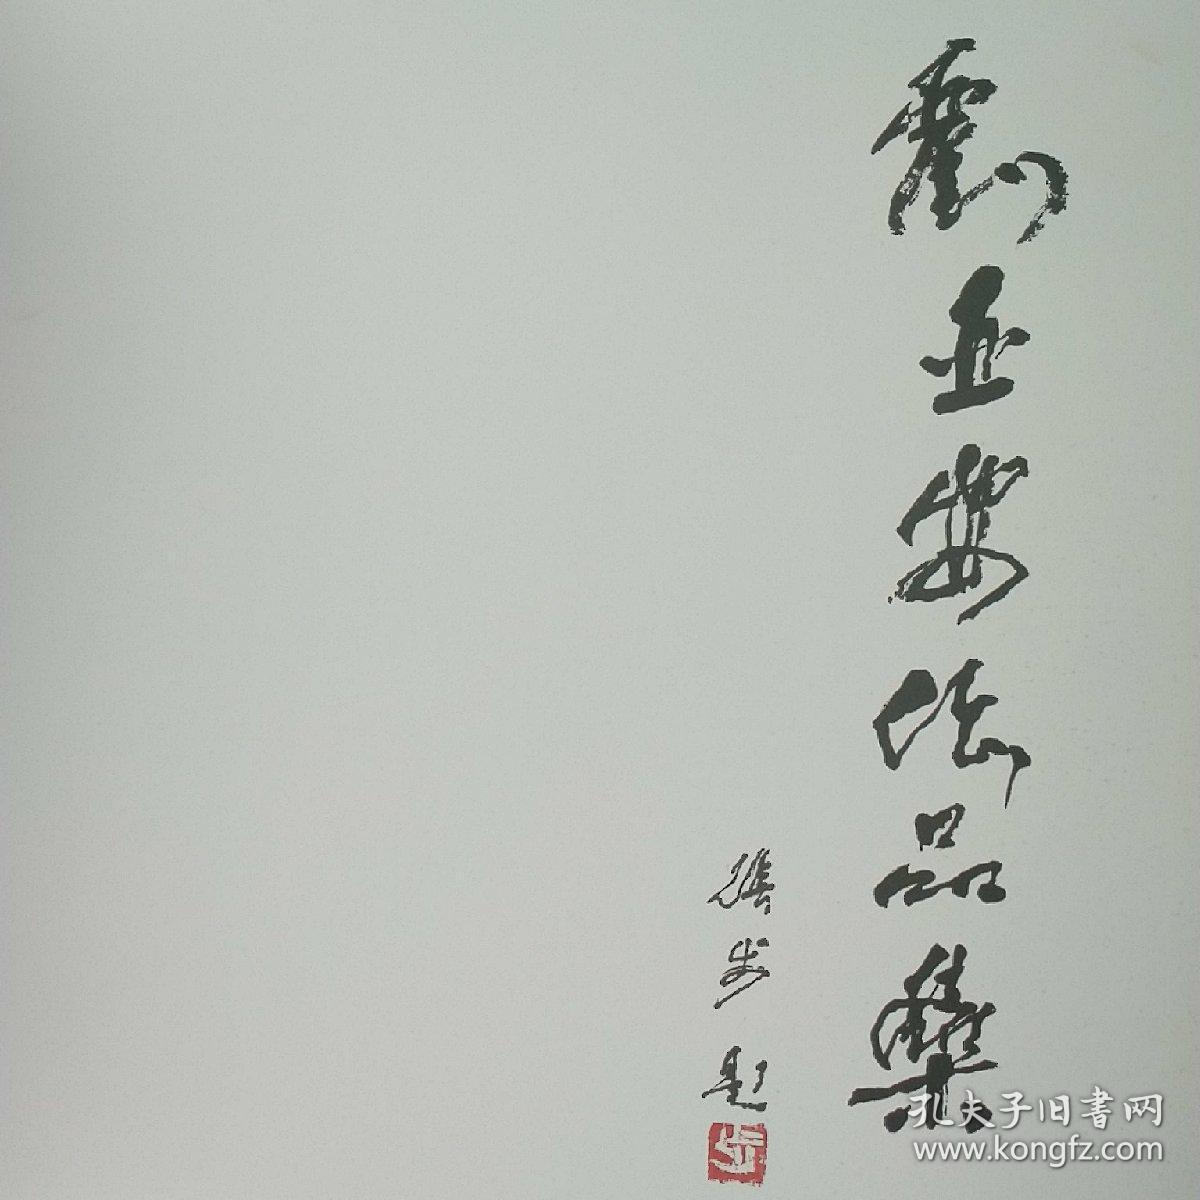 劉亚作品集
張步題
步
孔夫子旧書网
www.kongfz.com